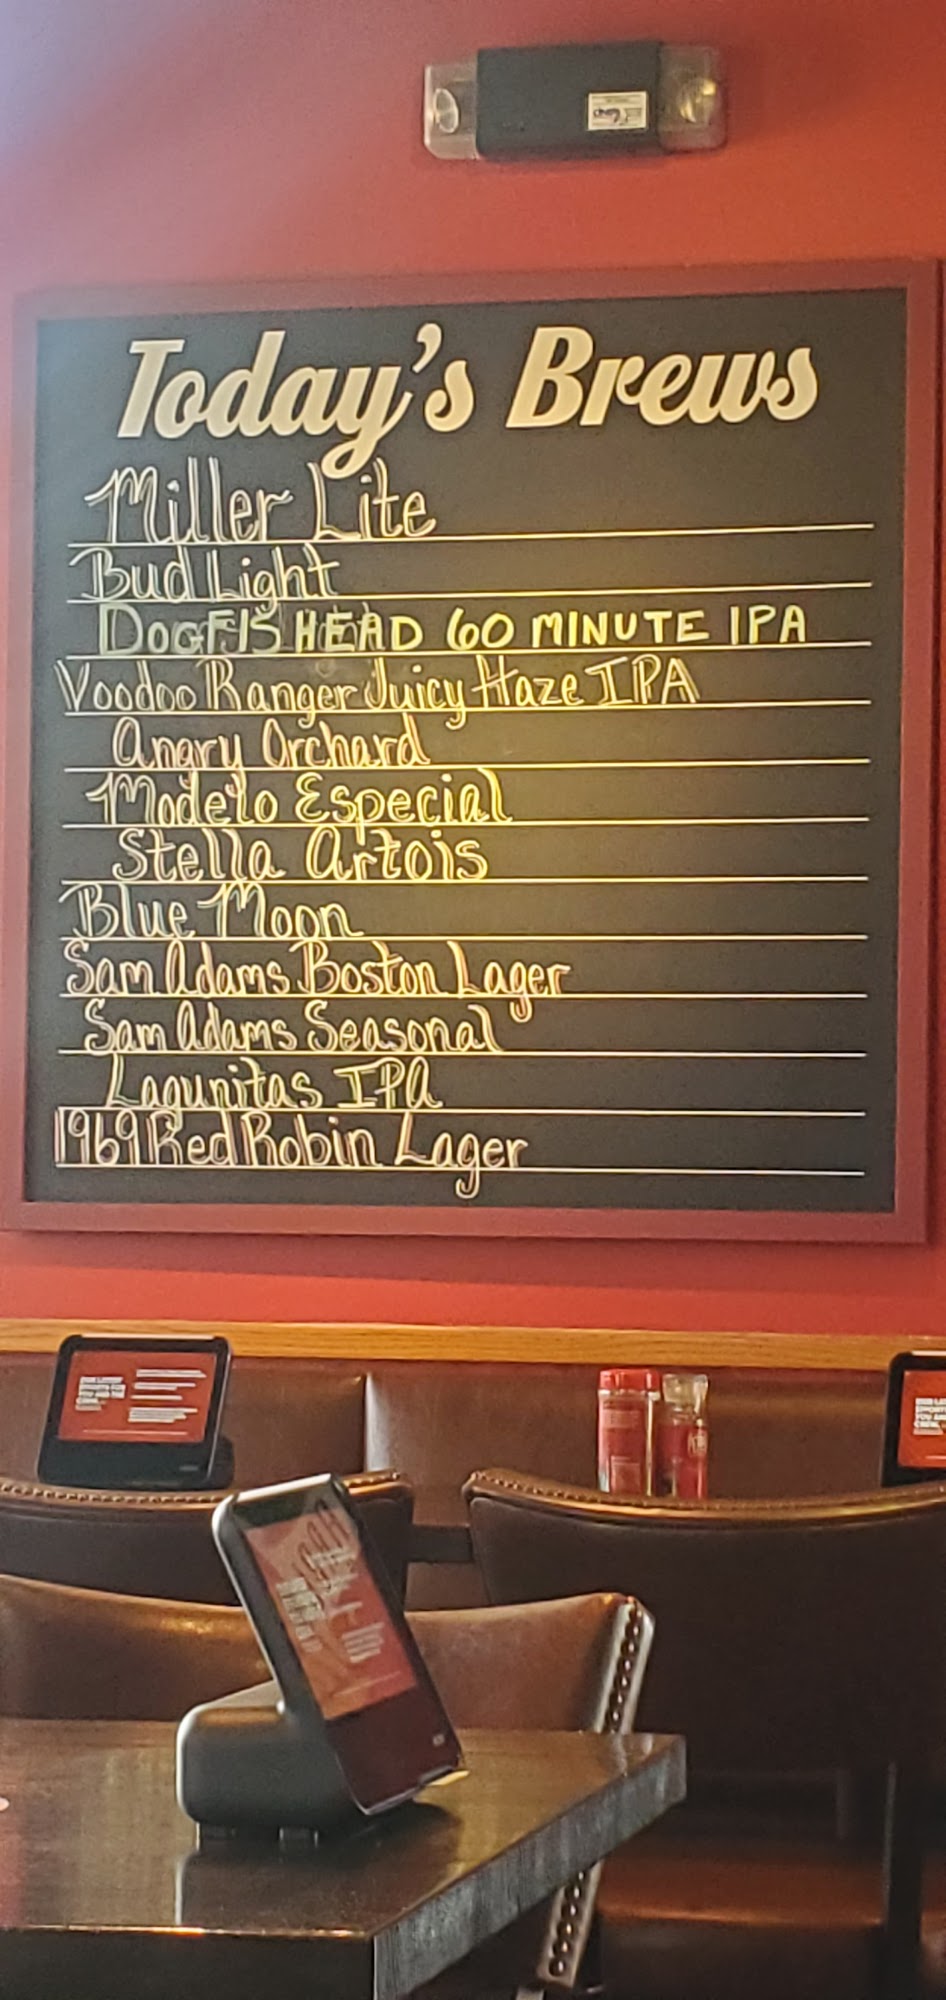 Today's Brews
Miller Lite
Bud Light
DOGFISHEAD 60 MINUTE IPA
Voodoo Ranger Juicy Haze IPA
Angry Orchard
Modelo Especial
Stella Artois
Blue Moon
Sam Adams Boston Lager
Sam Adams Seasonal
Lagunitas IPA
1969 Red Robin Lager